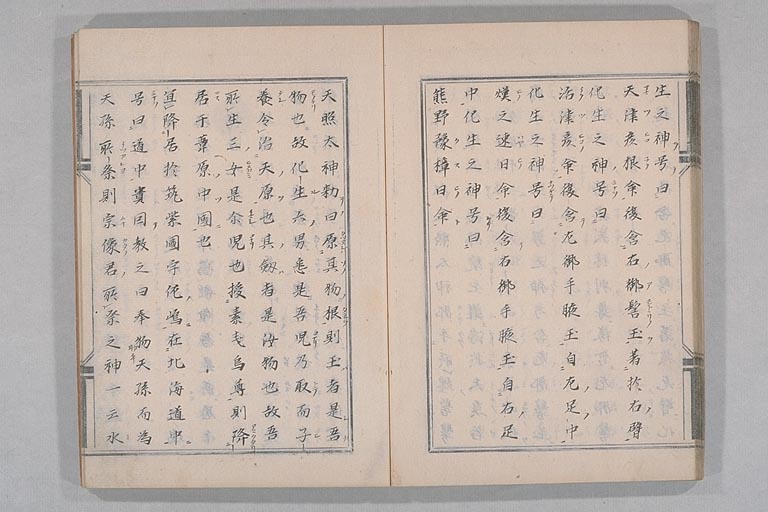 生之神号曰
天津彦根命後含右御髻玉著於右臂
化生之神号曰
活津彦命後含左御手腋玉自左足中
化生之神号曰
熯之速日命後含右御手腋玉自右足
中化生之神号曰
熊野豫樟日命
天照太神勅曰原其物根則玉者是吾
物也故化生六男悉是吾児乃取而子
養令治天原也其劔者是汝物也故吾
所生三女是尒児也授素戔烏尊則降
居于葦原中國也
宜降居於筑紫國宇佐嶋在北海道中
号曰道中貴因教之曰奉物天孫而為
天孫所祭則宗像君所祭之神一云水